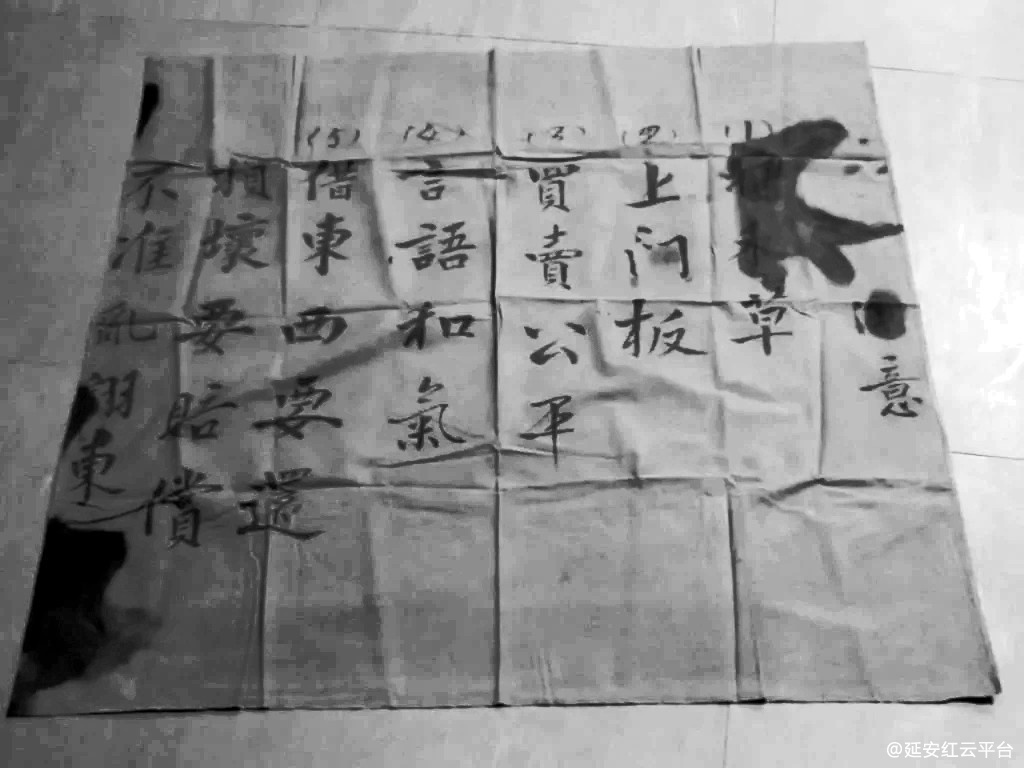 意
(1) 草
(2) 上门板
(3) 買賣公平
(4) 言語和氣
(5) 借東西要還
損壞要賠償
不准亂翻東
@延安红云平台